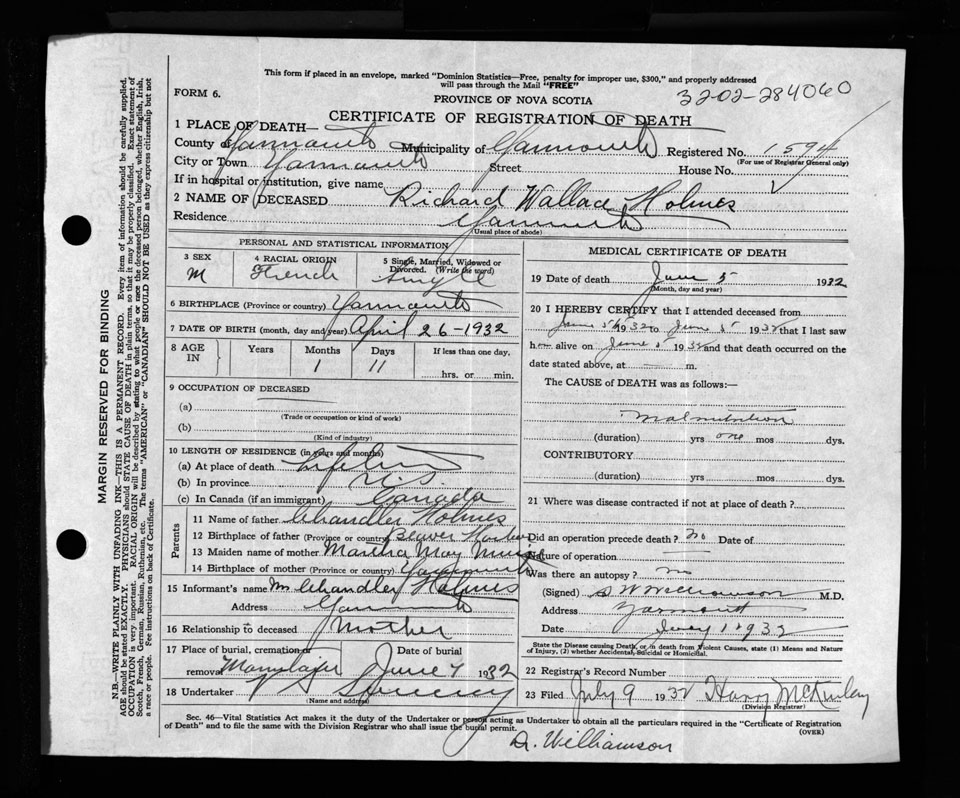 This form if placed in an envelope, marked "Dominion Statistics—Free, penalty for improper use, $300," and properly addressed
will pass through the Mail "FREE"
FORM 6.
PROVINCE OF NOVA SCOTIA
32-02-284060
CERTIFICATE OF REGISTRATION OF DEATH
1 PLACE OF DEATH—
County of Yarmouth Municipality of Yarmouth Registered No. 1594
(For use of Registrar General only)
City or Town Yarmouth Street House No.
If in hospital or institution, give name
2 NAME OF DECEASED Richard Wallace Holmes
Residence Yarmouth
(Usual place of abode)
PERSONAL AND STATISTICAL INFORMATION
3 SEX M
4 RACIAL ORIGIN French
5 Single, Married, Widowed or Divorced. (Write the word) Single
6 BIRTHPLACE (Province or country) Yarmouth
7 DATE OF BIRTH (month, day and year) April 26-1932
8 AGE IN Years Months Days If less than one day,
1 11 hrs. or min.
9 OCCUPATION OF DECEASED
(a)
(Trade or occupation or kind of work)
(b)
(Kind of industry)
10 LENGTH OF RESIDENCE (in years and months)
(a) At place of death Lifetime
(b) In province N.S.
(c) In Canada (if an immigrant) Canada
Parents
11 Name of father Chandler Holmes
12 Birthplace of father (Province or country) Beaver Harbor
13 Maiden name of mother Martha May
14 Birthplace of mother (Province or country) Yarmouth
15 Informant's name Mrs Chandler Holmes
Address Yarmouth
16 Relationship to deceased Mother
17 Place of burial, cremation or removal Date of burial
June 7 1932
18 Undertaker V S Sweeney
(Name and address)
MEDICAL CERTIFICATE OF DEATH
19 Date of death June 5 1932
(Month, day and year)
20 I HEREBY CERTIFY that I attended deceased from
June 5 1932 to June 5 1932 that I last saw
h alive on June 5 1932 and that death occurred on the
date stated above, at m.
The CAUSE of DEATH was as follows:
Malnutrition
(duration) yrs one mos dys.
CONTRIBUTORY
(duration) yrs mos dys.
21 Where was disease contracted if not at place of death?
Did an operation precede death? no Date of
Nature of operation
Was there an autopsy? no
(Signed) S W Williamson M.D.
Address Yarmouth
Date 1932
State the Disease causing Death, or in death from Violent Causes, state (1) Means and Nature
of Injury, (2) whether Accidental, Suicidal or Homicidal.
22 Registrar's Record Number
23 Filed July 9 1932 Harry McKinlay
(Division Registrar)
Sec. 46—Vital Statistics Act makes it the duty of the Undertaker or person acting as Undertaker to obtain all the particulars required in the "Certificate of Registration
of Death" and to file the same with the Division Registrar who shall issue the burial permit.
(OVER)
D. Williamson
MARGIN RESERVED FOR BINDING
N.B.—WRITE PLAINLY WITH UNFADING INK—THIS IS A PERMANENT RECORD. Every item of information should be carefully supplied.
AGE should be stated EXACTLY. PHYSICIANS should STATE CAUSE OF DEATH in plain terms, so that it may be properly classified. Exact statement of
OCCUPATION is very important. RACIAL ORIGIN will be described by stating to what people or race the deceased person belonged, whether English, Irish,
Scotch, French, German, Russian, Ruthenian, etc. The terms "AMERICAN" or "CANADIAN" SHOULD NOT BE USED as they express citizenship but not
a race or people. See instructions on back of Certificate.